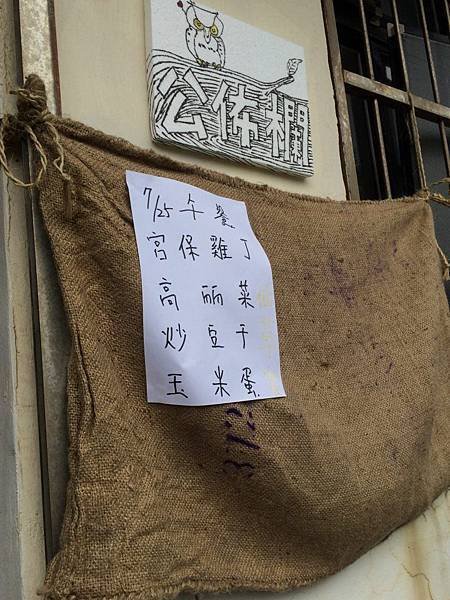 公佈欄
7/25 午餐
宮保雞丁
高丽菜
炒豆干
玉米蛋
372